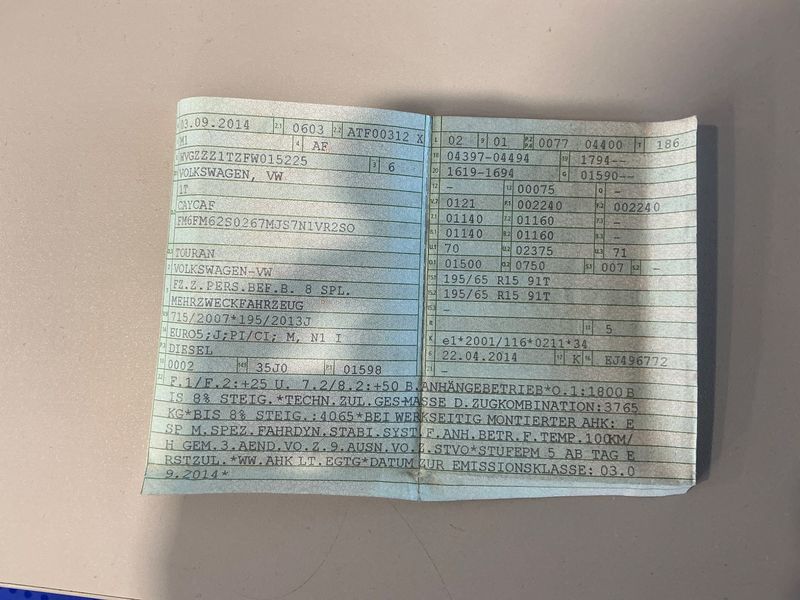 03.09.2014 2.1 0603 2.2 ATF00312 X
M1 4 AF
WVGZZZ1TZFW015225 3 6
VOLKSWAGEN, VW
1T
CAYCAF
FM6FM62S0267MJS7N1VR2SO
TOURAN
VOLKSWAGEN-VW
FZ.Z.PERS.BEF.B. 8 SPL.
MEHRZWECKFAHRZEUG
715/2007*195/2013J
EURO5;J;PI/CI; M, N1 I
DIESEL
0002 35J0 01598
L 02 9 01 0077 04400 T 186
18 04397-04494 19 1794--
20 1619-1694 G 01590--
12 - 13 00075 Q -
V.7 0121 F.1 002240 F.2 002240
7.1 01140 7.2 01160 7.3 -
8.1 01140 8.2 01160 8.3 -
U.1 70 U.2 02375 U.3 71
O.1 01500 O.2 0750 S.1 007 S.2 -
195/65 R15 91T
195/65 R15 91T
-
R 11 5
K e1*2001/116*0211*34
6 22.04.2014 17 K 16 EJ496772
21 -
F.1/F.2:+25 U. 7.2/8.2:+50 B.ANHÄNGEBETRIEB*O.1:1800 B
IS 8% STEIG.*TECHN.ZUL.GES-MASSE D.ZUGKOMBINATION:3765
KG*BIS 8% STEIG.:4065*BEI WERKSEITIG MONTIERTER AHK: E
SP M.SPEZ.FAHRDYN.STABI.SYST.F.ANH.BETR.F.TEMP.100KM/
H GEM.3.AEND.VO.Z.9.AUSN.VO.Z.STVO*STUFEPM 5 AB TAG E
RSTZUL.*WW.AHK LT.EGTG*DATUM ZUR EMISSIONSKLASSE: 03.0
9.2014*